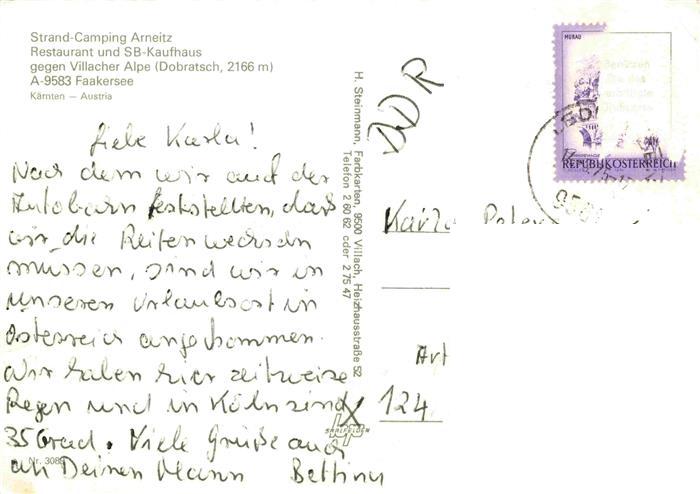 Strand-Camping Arneitz
Restaurant und SB-Kaufhaus
gegen Villacher Alpe (Dobratsch, 2166 m)
A-9583 Faakersee
Kärnten — Austria
Liebe Karla!
Nach dem wir auf der
Autobarn feststellten, daß
wir die Reifen wechseln
müssen, sind wir in
unseren Urlaubsort in
Österreich angekommen.
Wir haben hier zeitweise
Regen und in Köln sind
35 Grad. Viele Grüße auch
an Deinen Mann Bettina
Nr. 308
H. Steinmann, Farbkarten, 9500 Villach, Heizhausstraße 52
Telefon 2 60 62 oder 2 75 47
SAALFELDEN
DDR
MURAU
Benützen
Sie das
REPUBLIK ÖSTERREICH
Karla Peter
Art
124